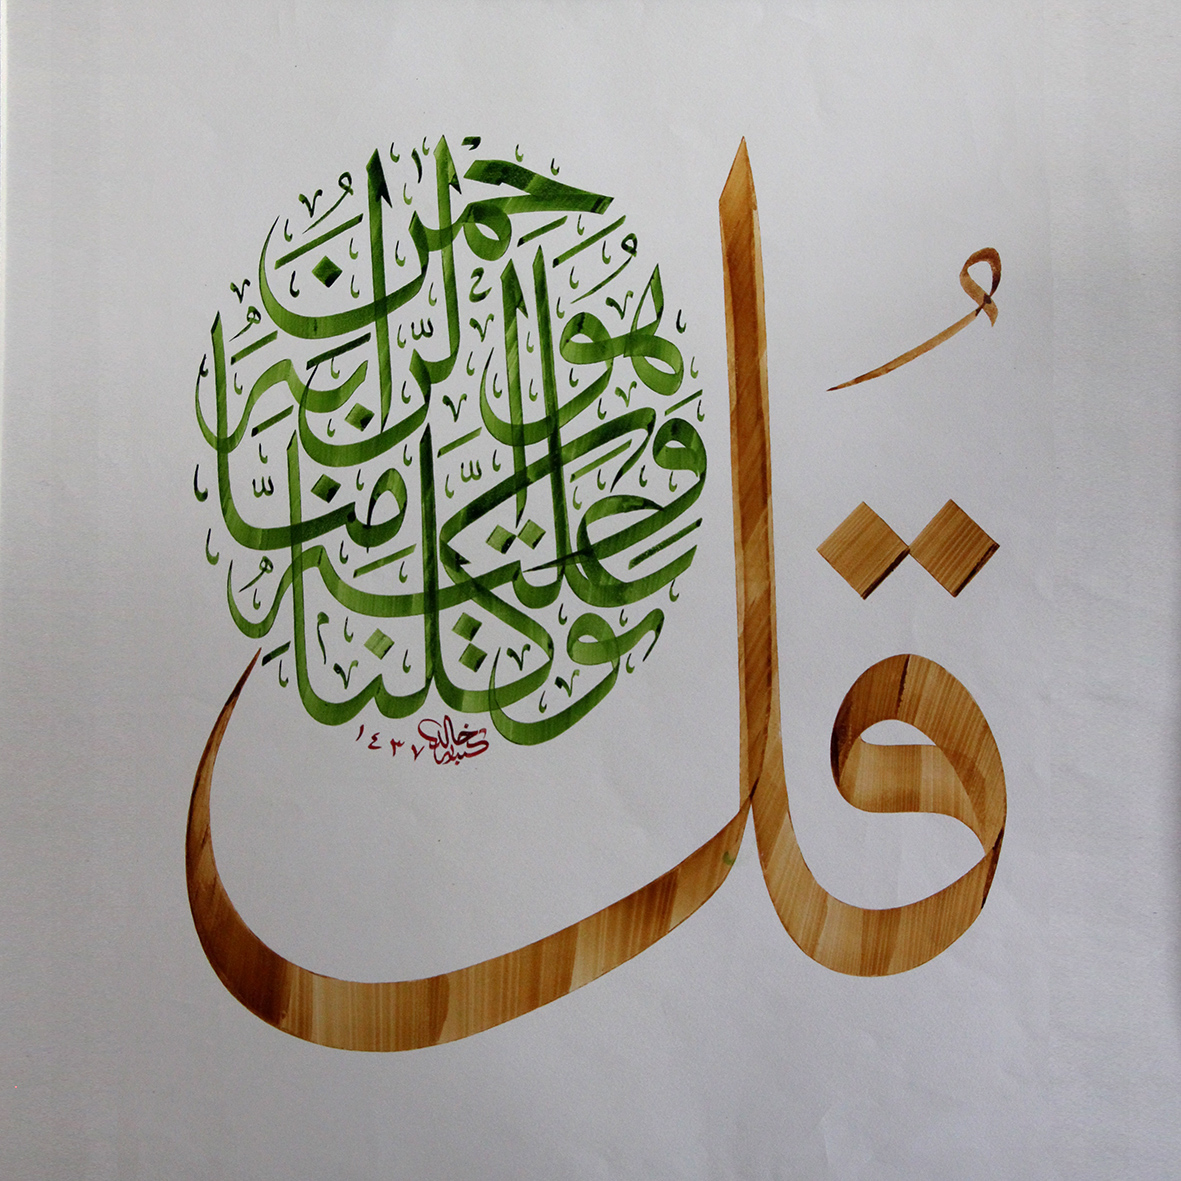 قُل
هُوَ الرَّحْمَنُ آمَنَّا بِهِ وَعَلَيْهِ تَوَكَّلْنَا
كتبه خالد ١٤٣٧